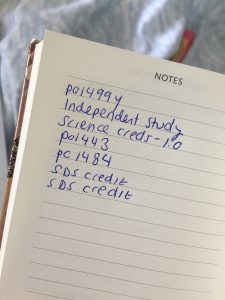 NOTES
pol499y
Independent study
Science creds - 1.0
pol443
pol484
SDS credit
SDS credit